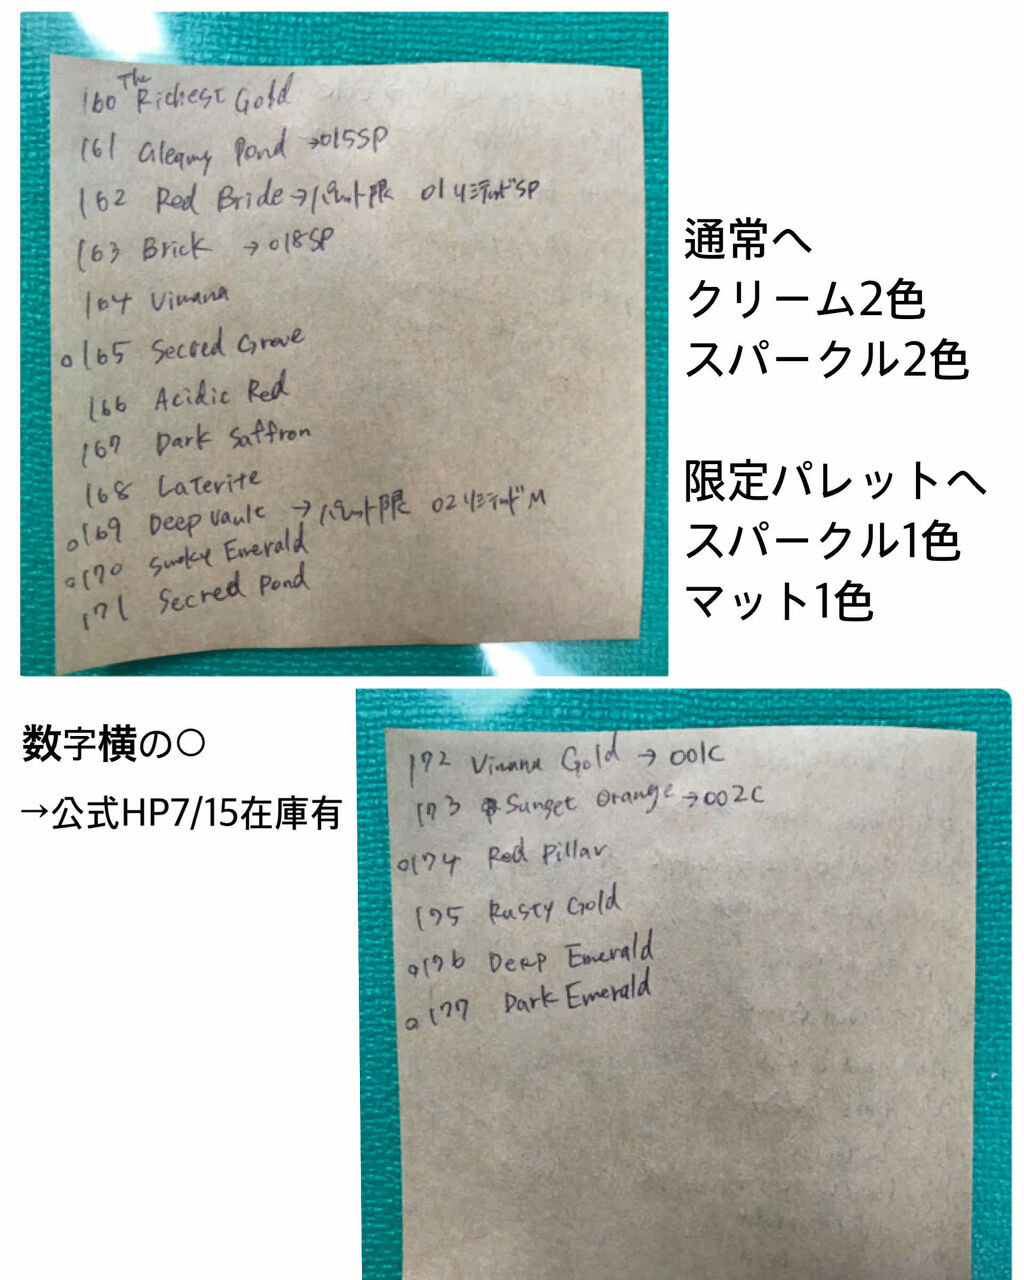 160 The Richest Gold
161 Gleamy Pond →015SP
162 Red Bride→パレット限 01リミテッドSP
163 Brick →018SP
164 Vimana
○165 Secred Grove
166 Acidic Red
167 Dark Saffron
168 Laterite
○169 Deep Vault →パレット限 02リミテッドM
○170 Smoky Emerald
171 Secred Pond
通常へ
クリーム2色
スパークル2色
限定パレットへ
スパークル1色
マット1色
数字横の○
→公式HP7/15在庫有
172 Vimana Gold →001C
173 Sunset Orange→002C
○174 Red Pillar
175 Rusty Gold
○176 Deep Emerald
○177 Dark Emerald